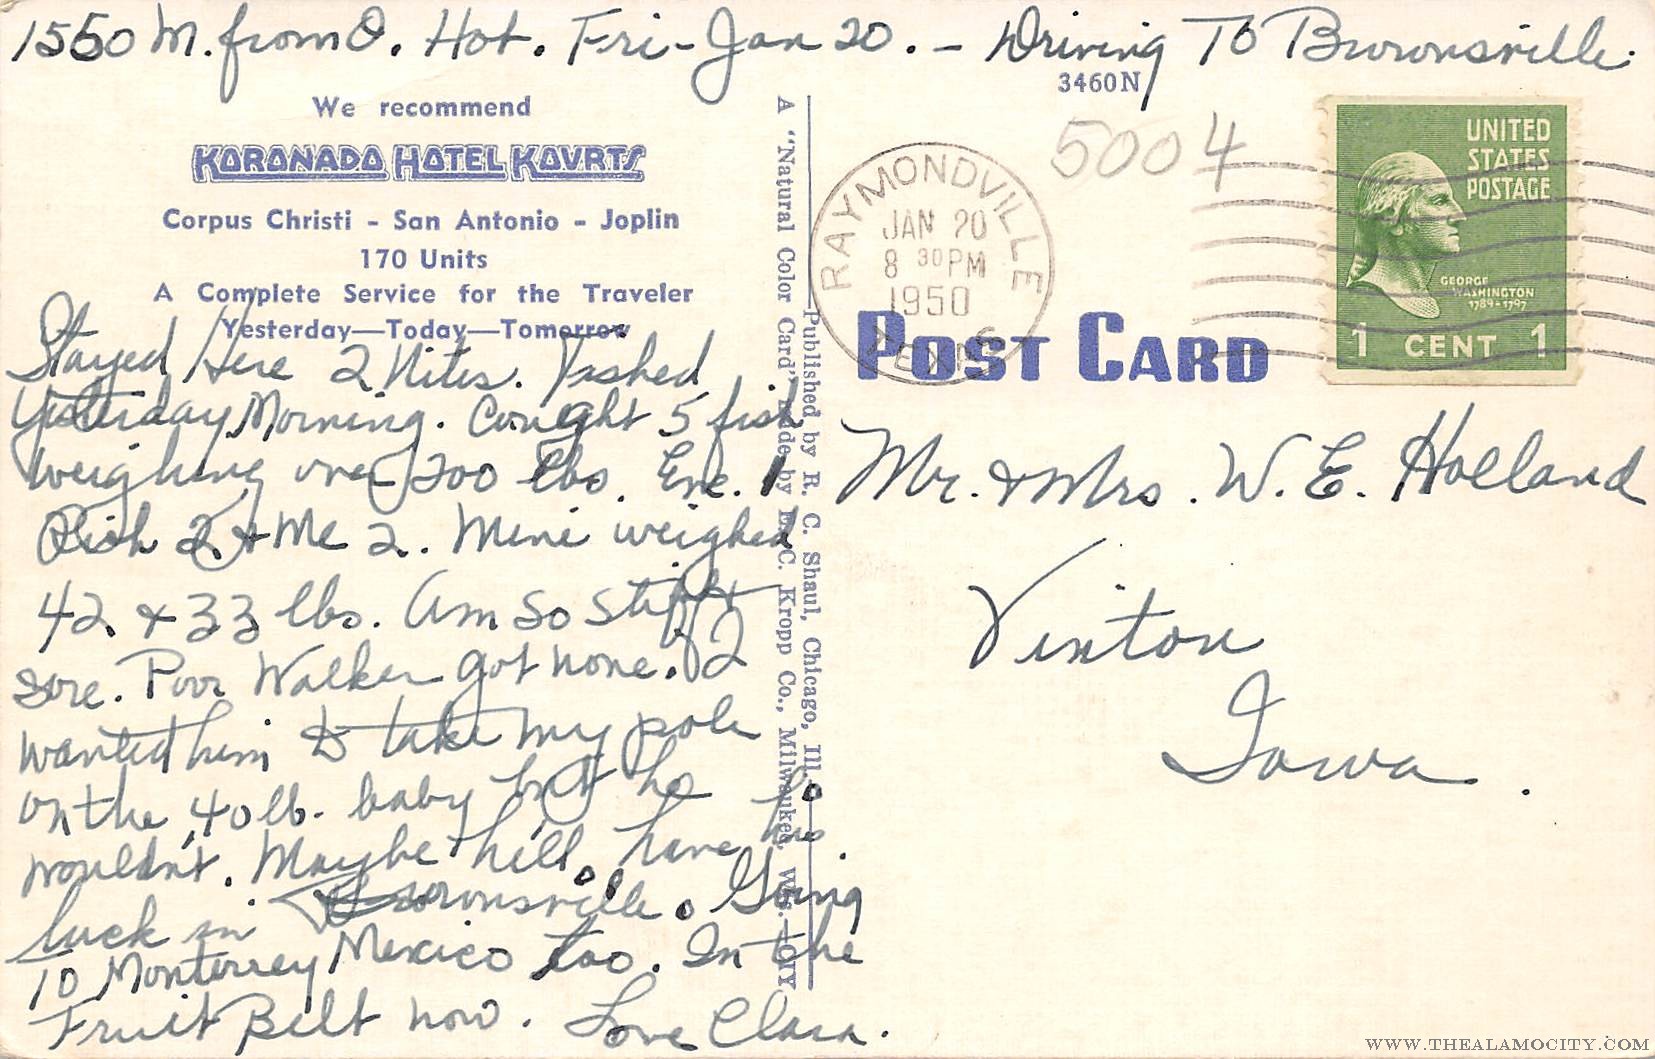 1550 M. from O. Hot. Fri - Jan 20. - Driving To Brownsville.
3460N
We recommend
KORONADO HOTEL KOVRTS
Corpus Christi - San Antonio - Joplin
170 Units
A Complete Service for the Traveler
Yesterday—Today—Tomorrow
Stayed Here 2 Nites. Fished
Yesterday Morning. Caught 5 fish
weighing over 200 lbs. Ene. 1
Dish 2. & Me 2. Mine weighed
42 & 33 lbs. Am so stiff &
sore. Poor Walker got none. I
wanted him to take my pole
on the 40 lb. baby but he
wouldn't. Maybe he'll have his
luck in Brownsville. Going
To Monterrey Mexico too. In the
Fruit Belt now. Love Clara.
A "Natural Color Card" Made by E. C. Kropp Co., Milwaukee, Wis.—CIY
Published by R. C. Shaul, Chicago, Ill.
5004
RAYMONDVILLE
JAN 20
8 30 PM
1950
TEXAS
UNITED
STATES
POSTAGE
GEORGE
WASHINGTON
1789-1797
1 CENT 1
POST CARD
Mr. & Mrs. W. E. Holland
Vinton
Iowa.
WWW.THEALAMOCITY.COM